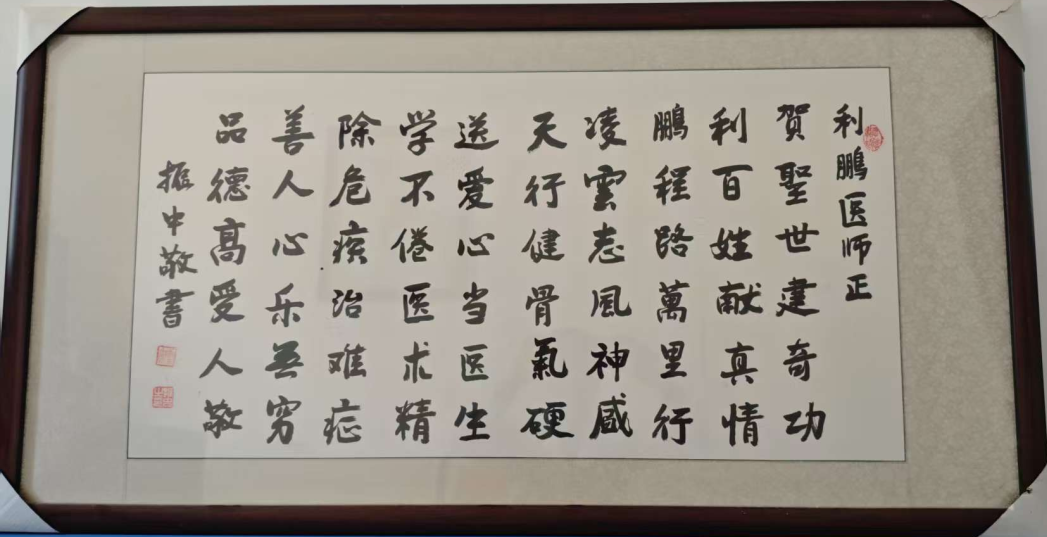 利鹏医师正
贺聖世建奇功
利百姓献真情
鹏程路萬里行
凌雲志風神威
天行健骨氣硬
送爱心当医生
学不倦医术精
除危疾治难症
善人心乐无穷
品德高受人敬
振中敬書